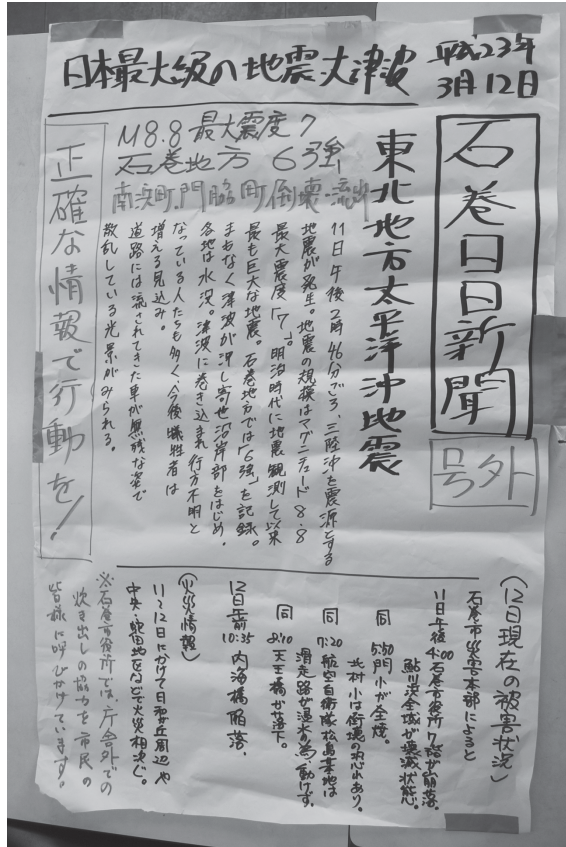 日本最大級の地震大津波
平成23年
3月12日
石巻日日新聞
号外
東北地方太平洋沖地震
M8.8 最大震度7
石巻地方 6強
南浜町、門脇町倒壊・流出
11日午後2時46分ごろ、三陸沖を震源とする
地震が発生。地震の規模はマグニチュード8.8
最大震度「7」。明治時代に地震観測して以来
最も巨大な地震。石巻地方では「6強」を記録。
まもなく津波が押し寄せ沿岸部をはじめ、
各地は水没。津波に巻き込まれ行方不明と
なっている人たちも多く、今後犠牲者は
増える見込み。
道路には流されてきた車が無残な姿で
散乱している光景がみられる。
正確な情報で行動を!
(12日現在の被害状況)
石巻市災害本部によると
11日午後4:00 石巻市役所
鮎川浜全域が壊滅状態。
同 5:50 門小が全焼。
北村小は倒壊の恐れあり。
同 7:20 航空自衛隊松島基地は
滑走路が浸水の為、動けず。
同 8:10 天王橋が落下。
12日午前
10:35 内海橋陥落。
(火災情報)
11〜12日にかけて日和が丘周辺や
中央・などで火災相次ぐ。
※石巻市役所では、庁舎外での
炊き出しの協力を市民の
皆様に呼びかけています。